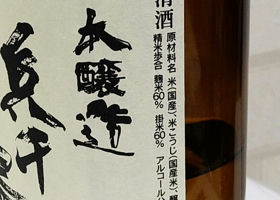 清酒
原材料名 米(国産)、米こうじ(国産米)、醸
精米歩合 麹米60% 掛米60% アルコール
本醸造